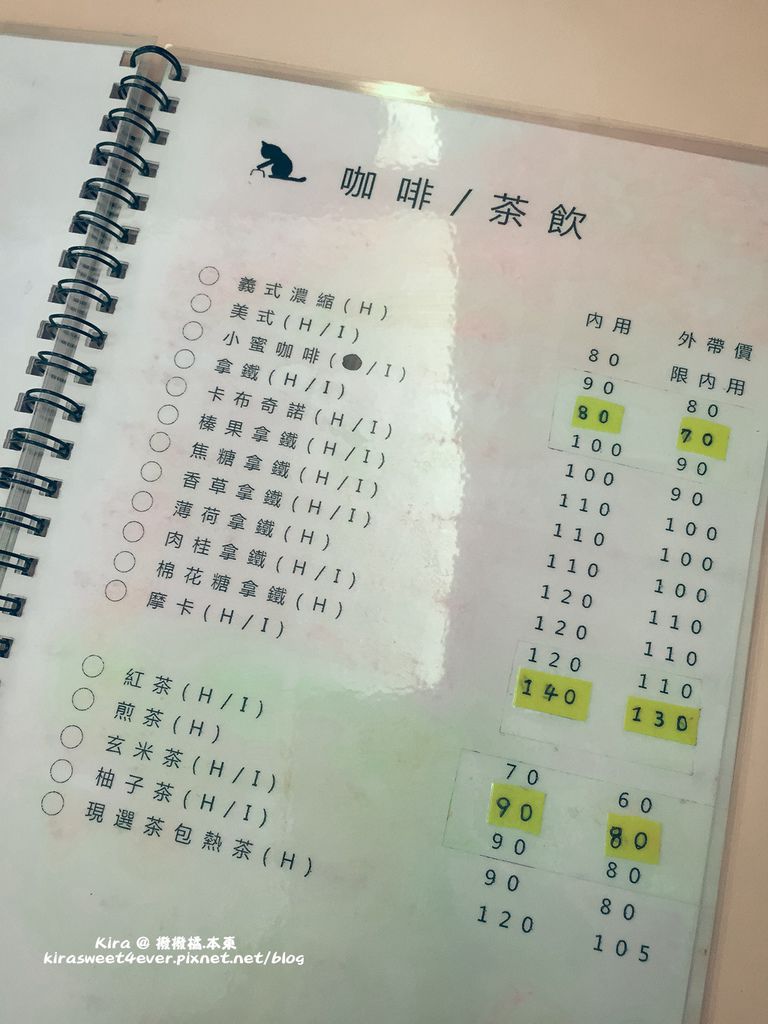 咖啡/茶飲
內用 外帶價
義式濃縮(H) 80 限內用
美式(H/I) 90 80
小蜜咖啡(●/I) 80 70
拿鐵(H/I) 100 90
卡布奇諾(H/I) 100 90
榛果拿鐵(H/I) 110 100
焦糖拿鐵(H/I) 110 100
香草拿鐵(H/I) 110 100
薄荷拿鐵(H) 120 110
肉桂拿鐵(H/I) 120 110
棉花糖拿鐵(H) 120 110
摩卡(H/I) 140 130
紅茶(H/I) 70 60
煎茶(H) 90 80
玄米茶(H/I) 90 80
柚子茶(H/I) 90 80
現選茶包熱茶(H) 120 105
Kira @ 撥撥橘.本東
kirasweet4ever.pixnet.net/blog